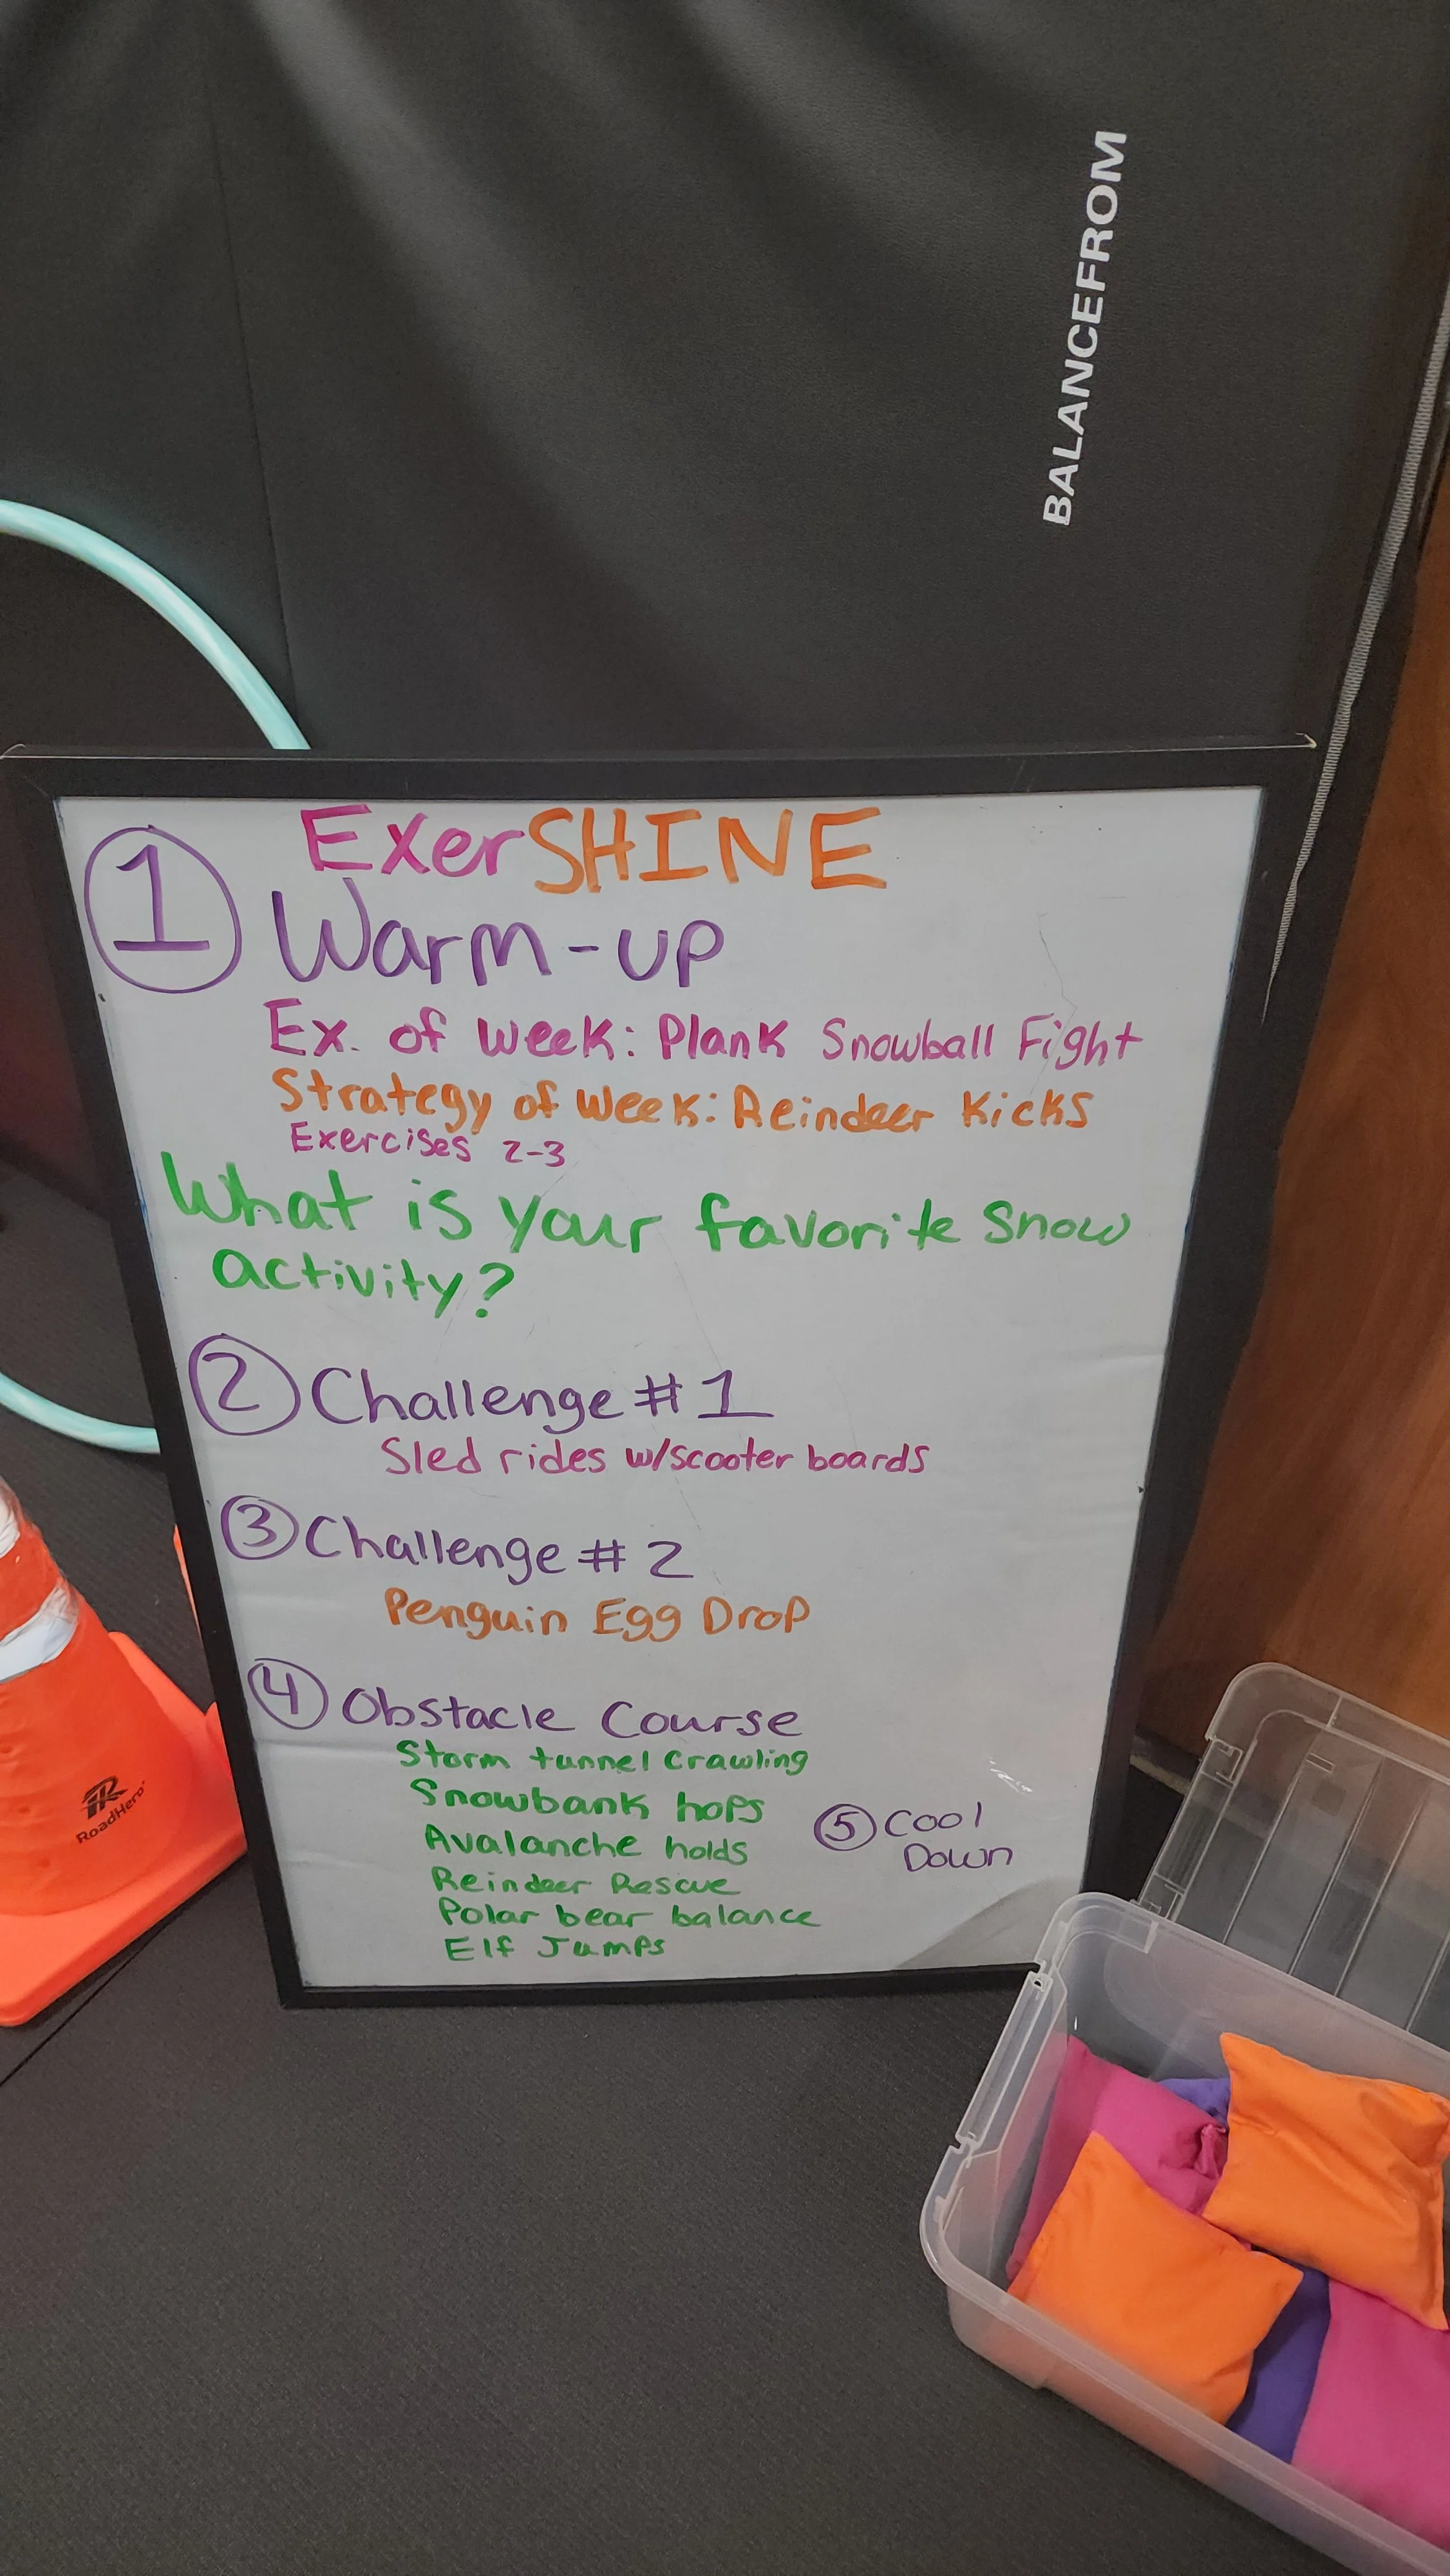 BALANCEFROM
ExerSHINE
1 Warm-up
Ex. of week: Plank Snowball Fight
Strategy of week: Reindeer Kicks
Exercises 2-3
What is your favorite snow
activity?
2 Challenge # 1
Sled rides w/scooter boards
3 Challenge # 2
Penguin Egg Drop
4 Obstacle Course
Storm tunnel crawling
Snowbank hops
Avalanche holds
Reindeer Rescue
Polar bear balance
Elf Jumps
5 Cool
Down
RoadHero